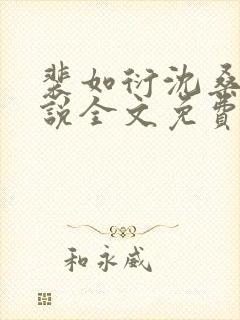 裴如衍沈桑
说全文免费
和永威